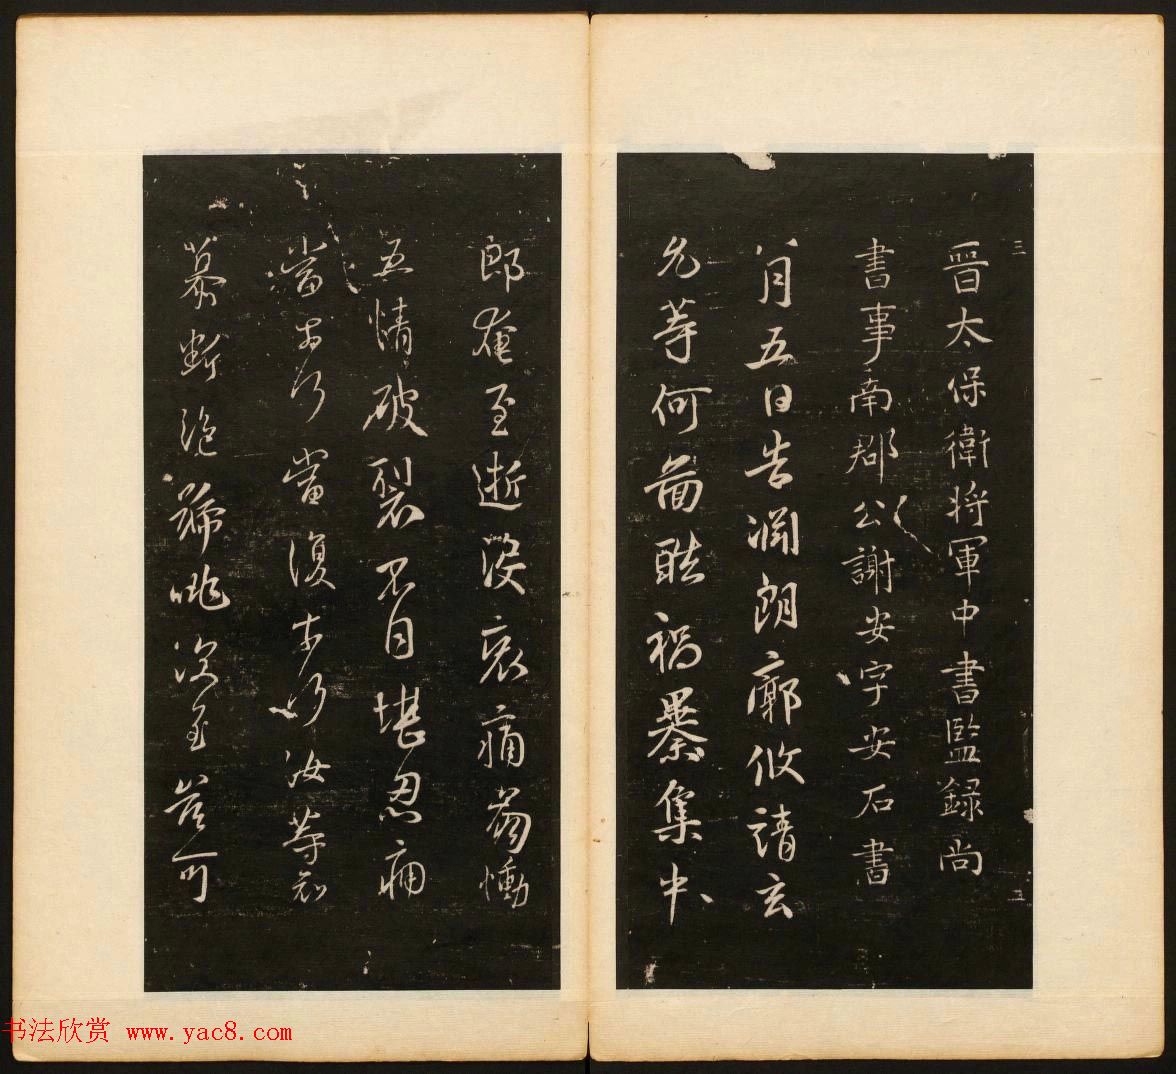 三
晉太保衛將軍中書監錄尚
書事南郡公謝安字安石書
八月五日告淵朗廓攸靖玄
允等何圖酷禍暴集中
郎奄至逝沒哀痛崩慟
五情破裂不自堪忍痛
當奈何當復奈何汝等
慕斷絕號咷次至豈可
三
书法欣赏 www.yac8.com